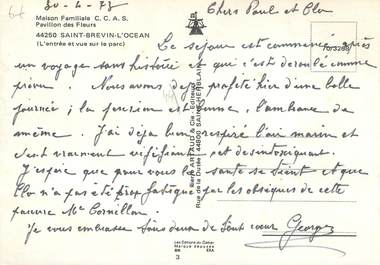 30-4-73
Chers Paul et Clo
Maison Familiale C.C.A.S.
Pavillon des Fleurs
44250 SAINT-BREVIN-L'OCEAN
(L'entrée et vue sur le parc)
Ce séjour est commencé après
un voyage sans histoire et qui s'est déroulé comme
prévu. Nous avons déjà profité hier d'une belle
journée ; la pension est bonne, l'ambiance de
même. J'ai déjà bien respiré l'air marin et
c'est vraiment vivifiant et désintoxiquant.
J'espère que pour vous la santé se tient et que
Clo n'a pas été trop fatiguée par les obsèques de cette
pauvre Me Cornillon.
Je vous embrasse tous deux de tout cœur
Georges
Pierre ARTAUD & Cie - Editeurs
Rue de la Durée - 44800 SAINT-HERBLAIN
Les Editions du Gabier
Marque déposée
3